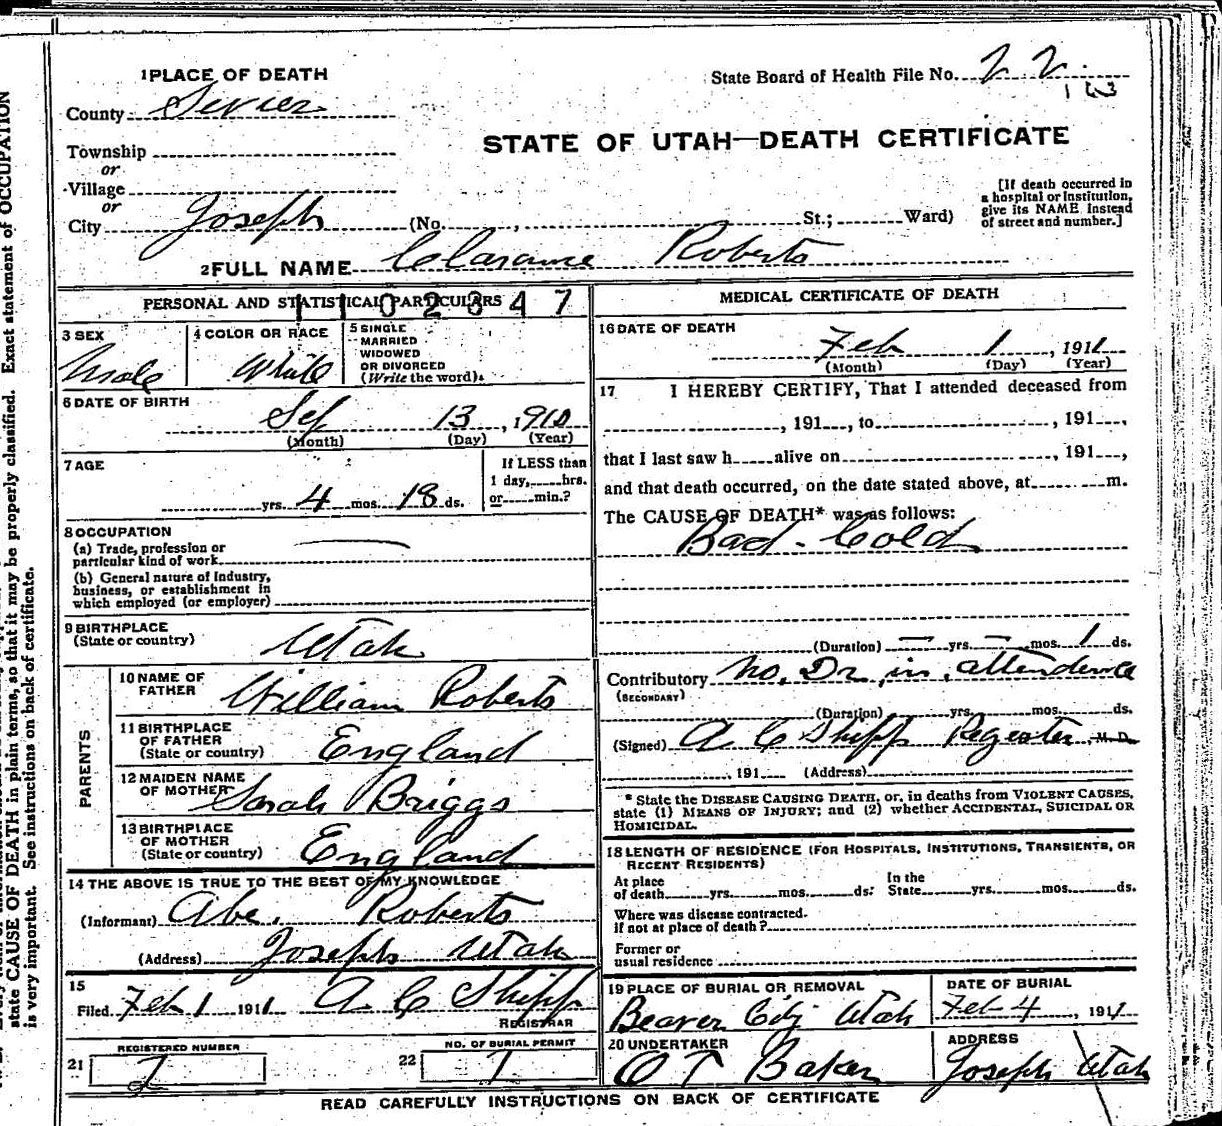 1 PLACE OF DEATH
State Board of Health File No. 22
143
County Sevier
STATE OF UTAH—DEATH CERTIFICATE
Township
or
Village
or
City Joseph (No. , St.; Ward)
[If death occurred in
a hospital or institution,
give its NAME instead
of street and number.]
2 FULL NAME Clarance Roberts
PERSONAL AND STATISTICAL PARTICULARS
1102347
3 SEX
Male
4 COLOR OR RACE
White
5 SINGLE
MARRIED
WIDOWED
OR DIVORCED
(Write the word).
6 DATE OF BIRTH
Sep 13, 1910
(Month) (Day) (Year)
7 AGE
yrs. 4 mos. 18 ds.
If LESS than
1 day, hrs.
or min.?
8 OCCUPATION
(a) Trade, profession or
particular kind of work
(b) General nature of Industry,
business, or establishment in
which employed (or employer)
9 BIRTHPLACE
(State or country) Utah
PARENTS
10 NAME OF
FATHER William Roberts
11 BIRTHPLACE
OF FATHER
(State or country) England
12 MAIDEN NAME
OF MOTHER Sarah Briggs
13 BIRTHPLACE
OF MOTHER
(State or country) England
14 THE ABOVE IS TRUE TO THE BEST OF MY KNOWLEDGE
(Informant) Abe. Roberts
(Address) Joseph Utah
15
Filed Feb 1 1911 A C Shipp
REGISTRAR
21 REGISTERED NUMBER
2
22 NO. OF BURIAL PERMIT
1
MEDICAL CERTIFICATE OF DEATH
16 DATE OF DEATH
Feb 1, 1911
(Month) (Day) (Year)
17 I HEREBY CERTIFY, That I attended deceased from
, 191 , to , 191 ,
that I last saw h alive on , 191 ,
and that death occurred, on the date stated above, at m.
The CAUSE OF DEATH* was as follows:
Bad-Cold
(Duration) — yrs. — mos. 1 ds.
Contributory No. Dr in attendence
(SECONDARY)
(Duration) yrs. mos. ds.
(Signed) A C Shipp Regester, M. D.
, 191 (Address)
* State the DISEASE CAUSING DEATH, or, in deaths from VIOLENT CAUSES,
state (1) MEANS OF INJURY; and (2) whether ACCIDENTAL, SUICIDAL OR
HOMICIDAL.
18 LENGTH OF RESIDENCE (FOR HOSPITALS, INSTITUTIONS, TRANSIENTS, OR
RECENT RESIDENTS)
At place
of death yrs. mos. ds.
In the
State yrs. mos. ds.
Where was disease contracted.
if not at place of death?
Former or
usual residence
19 PLACE OF BURIAL OR REMOVAL
Beaver City Utah
DATE OF BURIAL
Feb 4, 1911
20 UNDERTAKER
O T Baker
ADDRESS
Joseph Utah
READ CAREFULLY INSTRUCTIONS ON BACK OF CERTIFICATE
state CAUSE OF DEATH in plain terms, so that it may be properly classified. Exact statement of OCCUPATION
is very important. See instructions on back of certificate.